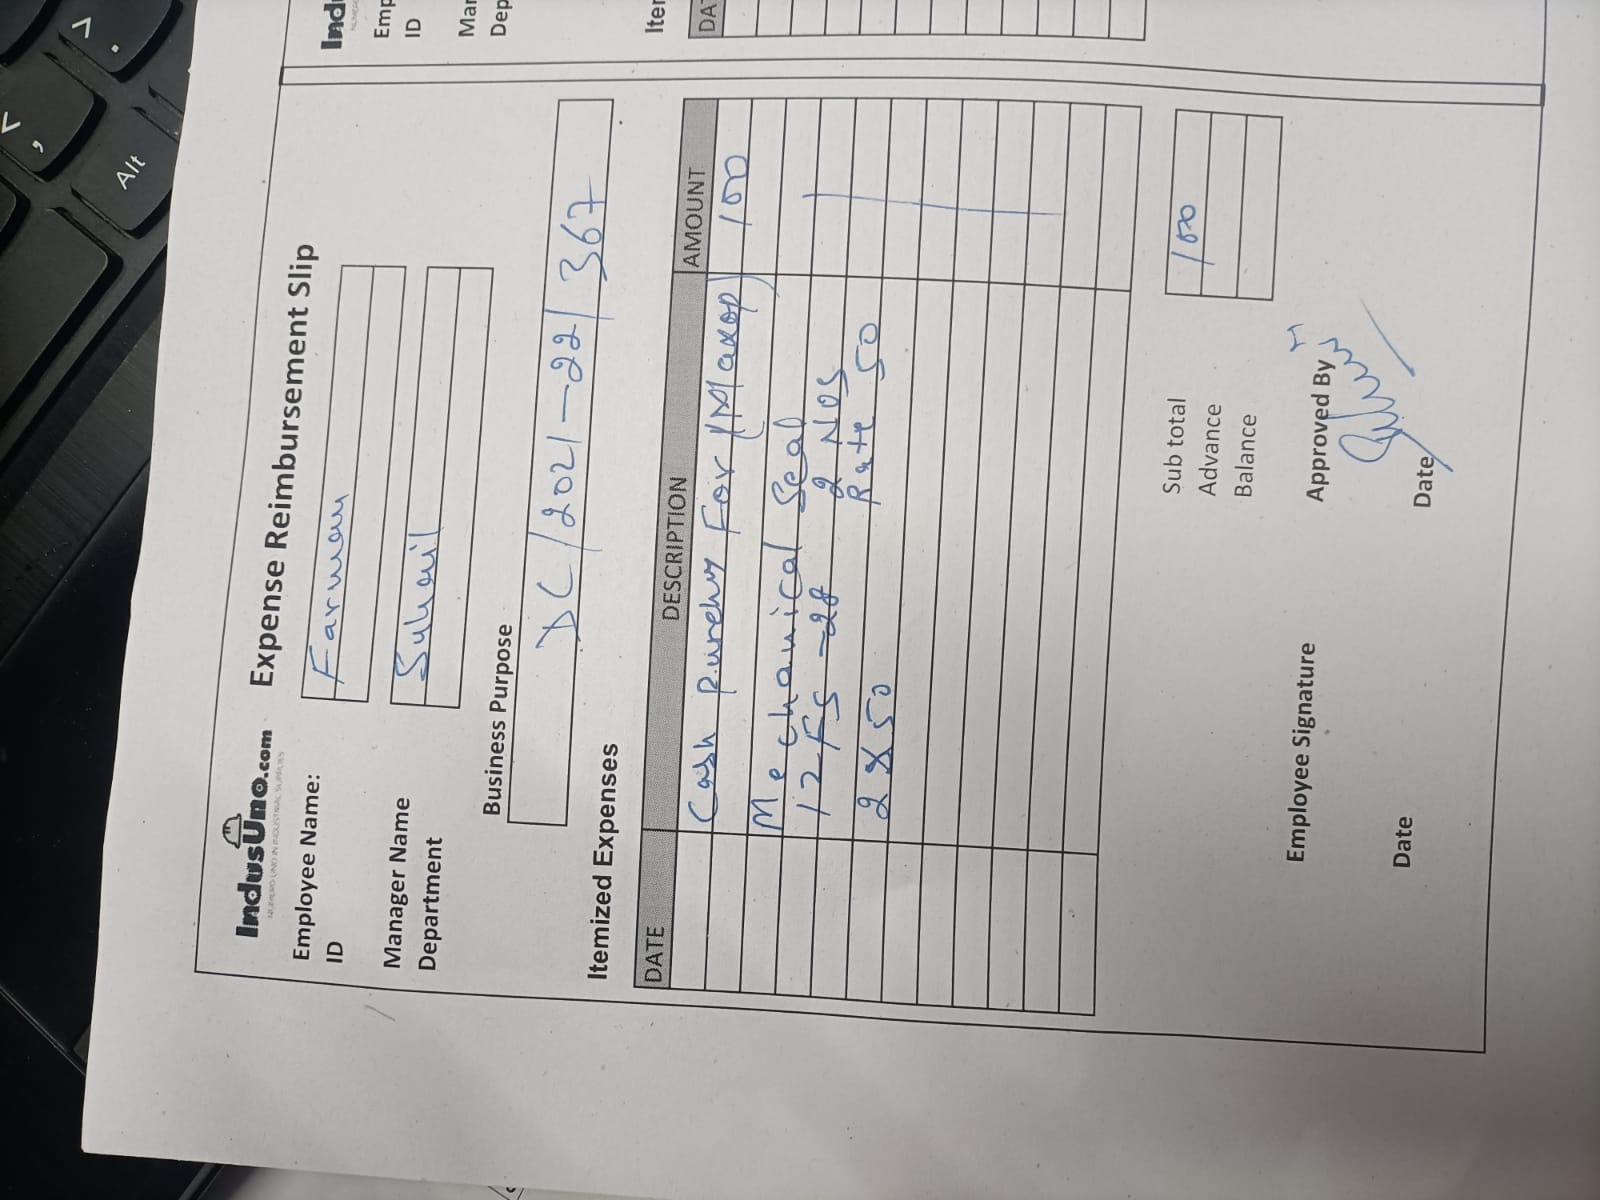 IndusUno.com
NUMERO UNO IN INDUSTRIAL SUPPLIES
Expense Reimbursement Slip
Employee Name: Farman
ID
Manager Name Suhail
Department
Business Purpose
DC/2021-22/367
Itemized Expenses
DATE DESCRIPTION AMOUNT
Cash For (Maxop) 100
Mechanical Seal
12 FS -28 2 NOS
2X50 Rate 50
Sub total 100
Advance
Balance
Employee Signature Approved By
Date Date
Ind
Emp
ID
Mar
Dep
Iter
DA
Alt
<
,
>
.